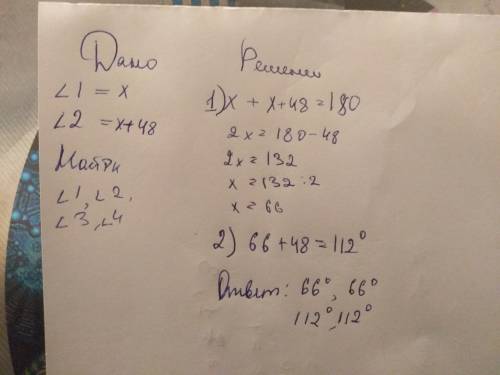 Дано
∠1 = x
∠2 = x+48
Найти
∠1, ∠2,
∠3, ∠4
Решение
1) x + x+48 = 180
2x = 180-48
2x = 132
x = 132 : 2
x = 66
2) 66 + 48 = 112°
Ответ: 66°, 66°
112°, 112°